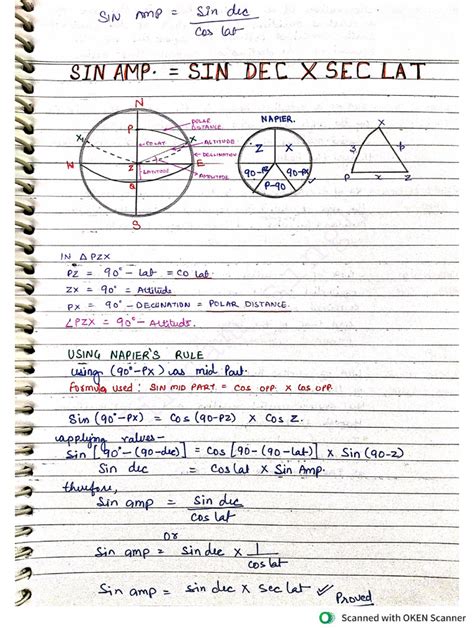 SIN AMP = Sin dec
Cos lat
SIN AMP. = SIN DEC X SEC LAT
N
POLAR DISTANCE.
P
X
X
CO LAT
ALTITUDE
DECLINATION
W
Z
E
LATITUDE
AMPLITUDE
Q
S
NAPIER.
Z
X
90-PZ
90-PX
P-90
X
P
x
Z
IN △ PZX
PZ = 90° - Lat = CO Lat.
ZX = 90° = Altitude
PX = 90° - DECLINATION = POLAR DISTANCE.
∠PZX = 90° - Altitude.
USING NAPIER'S RULE
using (90°-PX) as mid Part.
Formula used: SIN MID PART = COS OPP. X COS OPP.
Sin (90°-PX) = Cos (90-PZ) X Cos Z.
applying values-
Sin [90°-(90-dec)] = Cos [90-(90-lat)] X Sin (90-Z)
Sin dec = Cos lat X Sin Amp.
therefore,
Sin amp = Sin dec
Cos lat
or
Sin amp = Sin dec X 1
Cos lat
Sin amp = Sin dec X Sec lat ✓ Proved
Scanned with OKEN Scanner